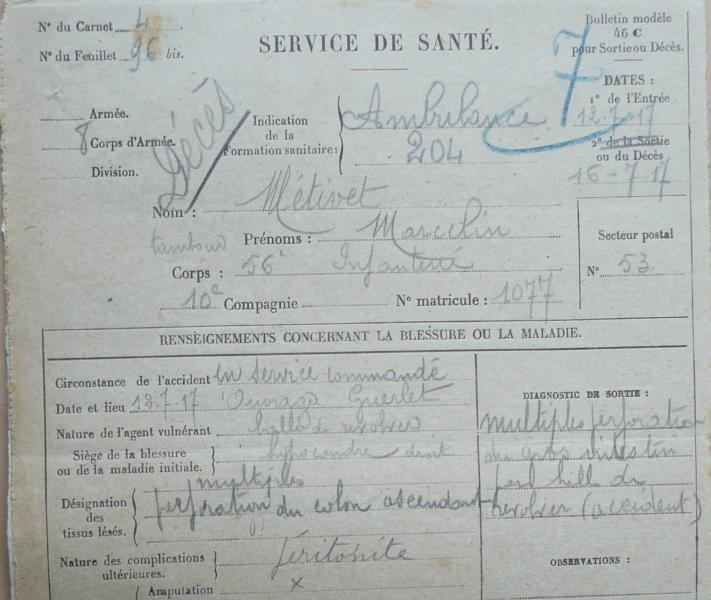 N° du Carnet 4
N° du Feuillet 96 bis.
SERVICE DE SANTÉ.
Bulletin modèle
46 C
pour Sortie ou Décès.
7
DATES :
1° de l'Entrée
12.7.17
2° de la Sortie
ou du Décès
16-7-17
Armée.
8 Corps d'Armée.
Division.
Décès
Indication
de la
Formation sanitaire :
Ambulance
204
Nom : Métivet
tambour Prénoms : Marcelin
Corps : 56e Infanterie
10e Compagnie N° matricule : 1077
Secteur postal
N° 53
RENSEIGNEMENTS CONCERNANT LA BLESSURE OU LA MALADIE.
Circonstance de l'accident en service commandé
Date et lieu 12.7.17 Ouvrage Guerlet
Nature de l'agent vulnérant balle de revolver
Siège de la blessure
ou de la maladie initiale.
hypocondre droit
Désignation
des
tissus lésés.
multiples
perforation du colon ascendant
Nature des complications
ultérieures.
Péritonite
Amputation x
DIAGNOSTIC DE SORTIE :
multiples perforation
du gros intestin
par balle de
revolver (accident)
OBSERVATIONS :